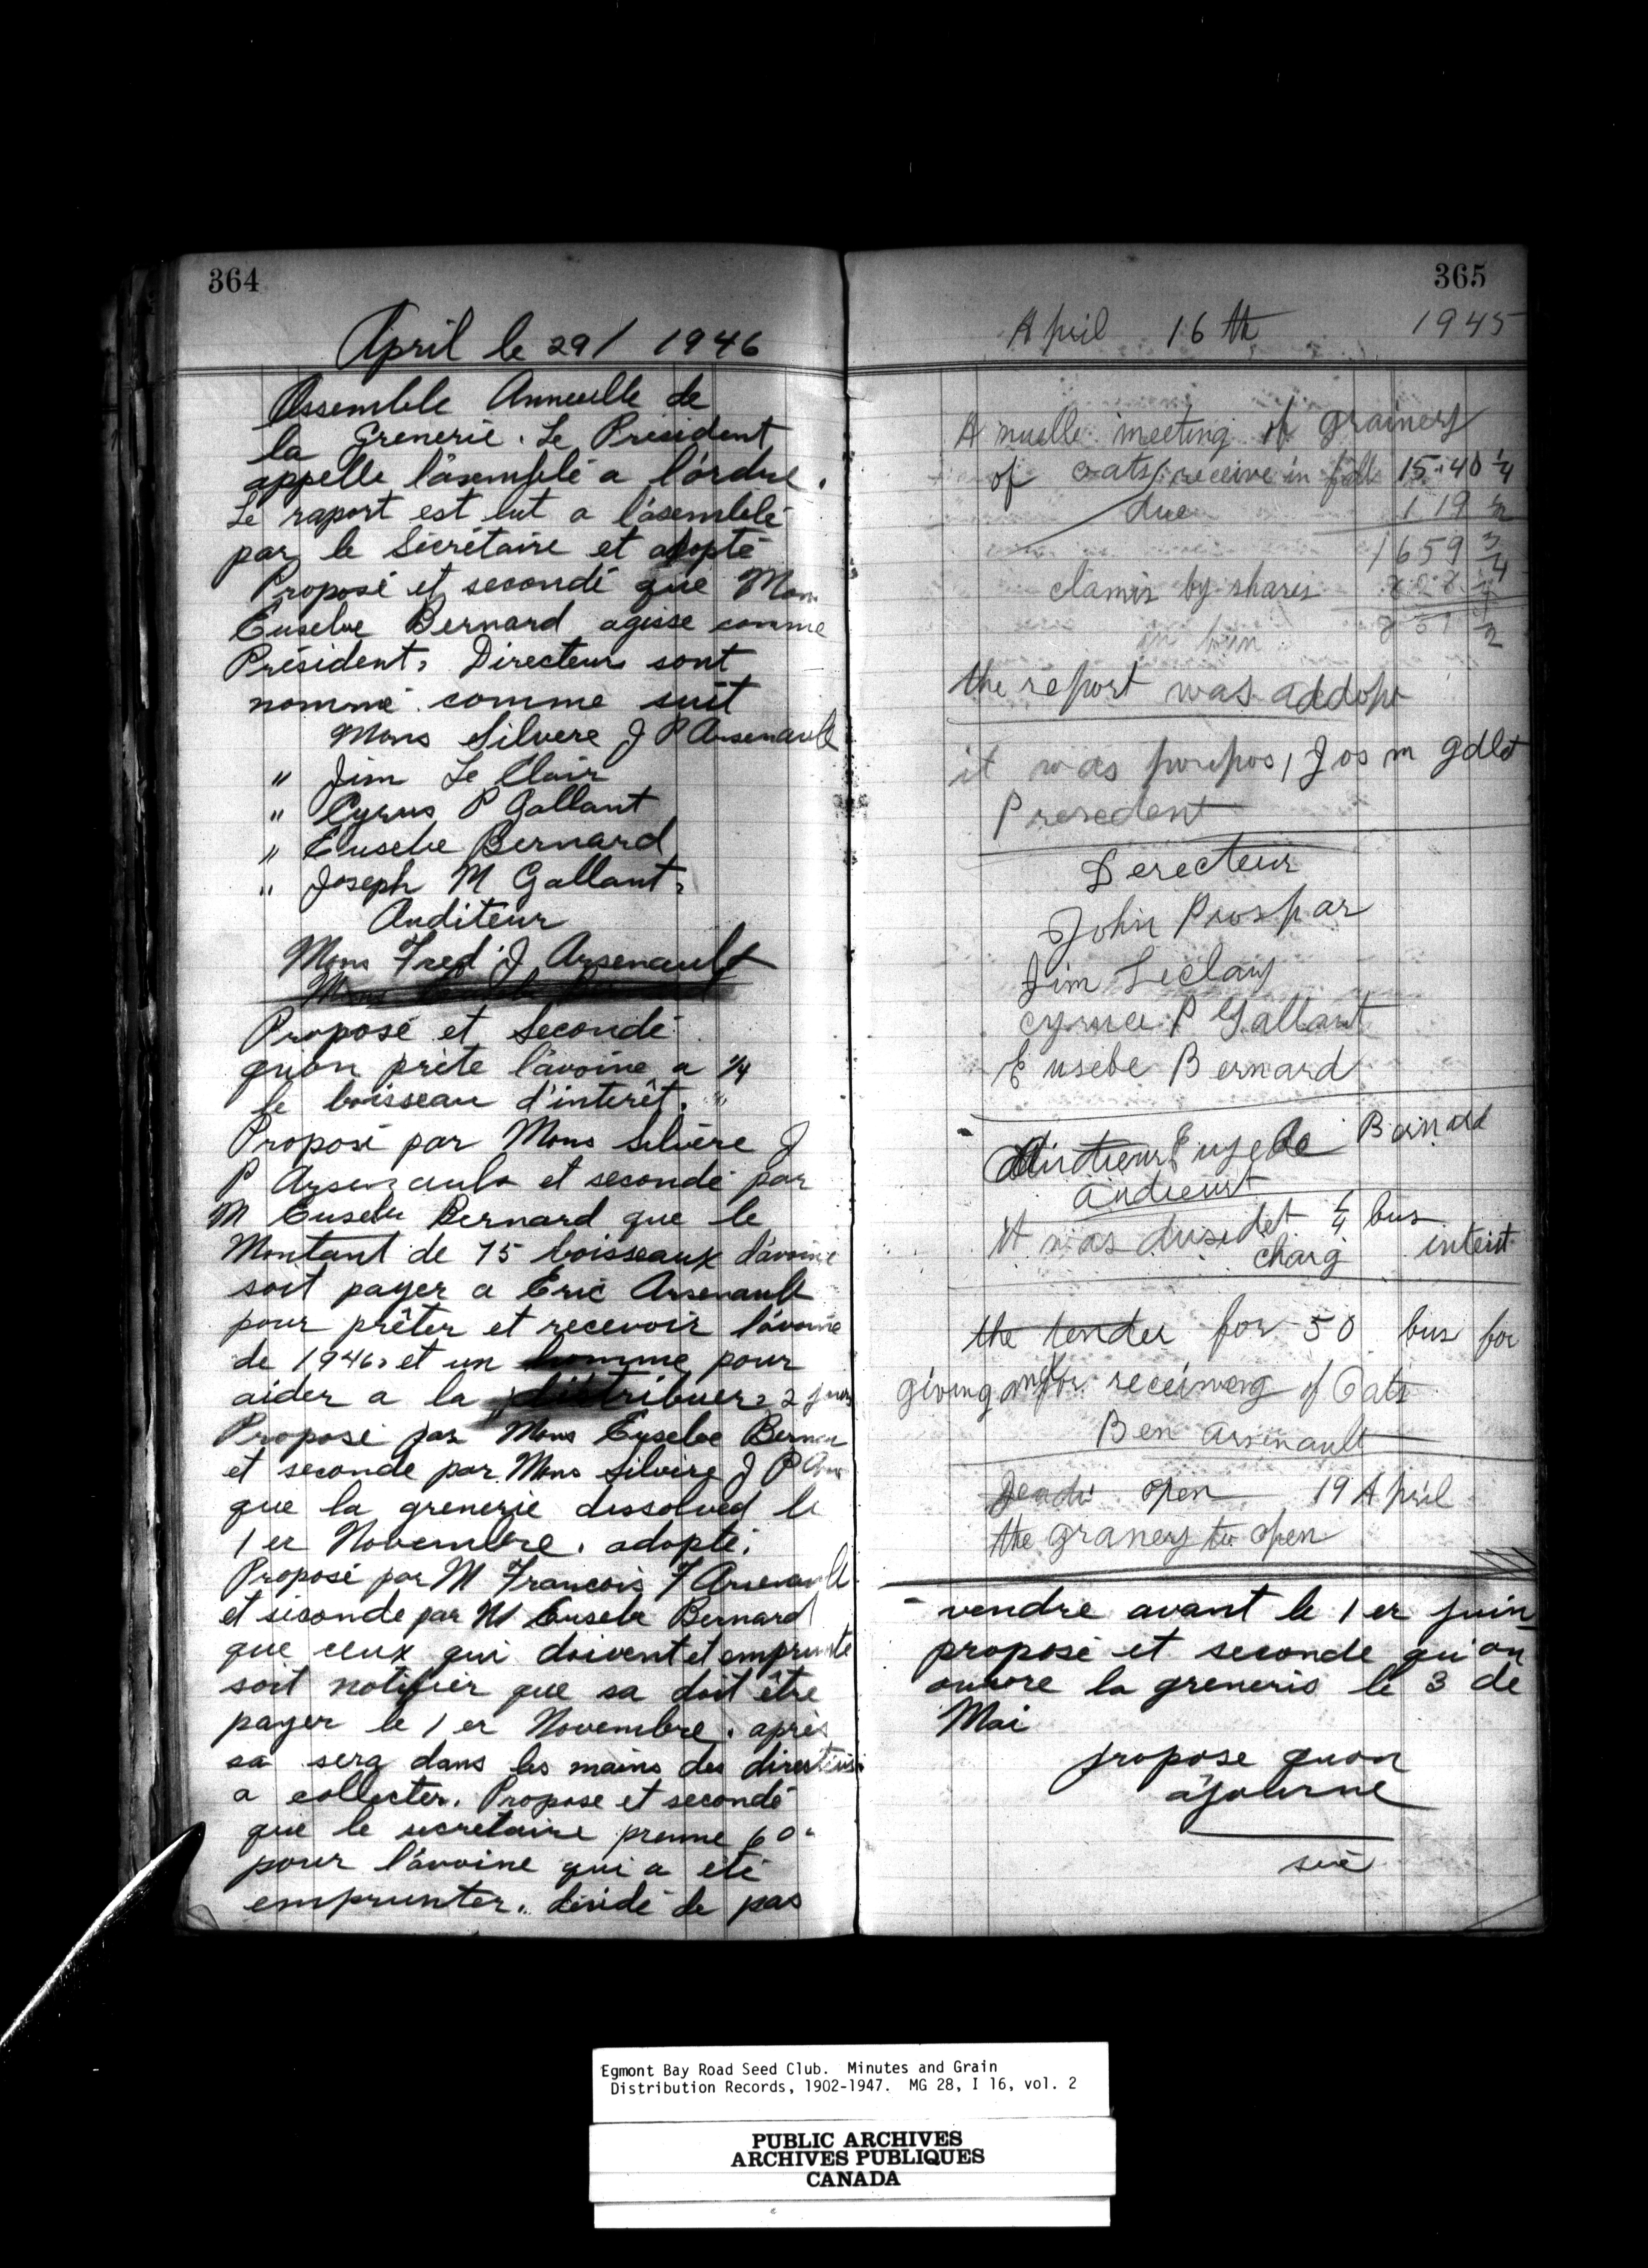 364
April le 29/ 1946
Assemble Annuelle de
la Grenerie. Le President
appelle l'asemblé a l'ordre.
Le raport est lut a l'asemblé
par le Sécrétaire et adopté
Proposé et secondé que Mons
Eusebe Bernard agisse comme
Président, Directeurs sont
nommé comme suit
Mons Silvere J P Arsenault
" Jim Le Clair
" Cyrus P Gallant
" Eusebe Bernard
" Joseph M Gallant,
Auditeur
Mons Fred J Arsenault
Proposé et Secondé
qu'on prète l'avoine a 1/4
le boisseau d'interêt.
Proposé par Mons Silvère J
P Arsenault et secondé par
M Eusebe Bernard que le
Montant de 75 boisseaux d'avoine
soit payer a Eric Arsenault
pour prêter et recevoir l'avoine
de 1946, et un homme pour
aider a la distribuer, 2 jours
Proposé par Mons Eusebe Bernar
et seconde par Mons Silvire J P Ars
que la grenerie dissolved le
1 er Novembre. adopté.
Proposé par M Francois F Arsenault
et séconde par M Eusebe Bernard
que ceux qui doivent et emprunte
soit notifier que sa doit être
payer le 1 er Novembre. après
sa sera dans les mains des directeurs
a collecter. Propose et secondé
que le secretaire prenne 60 c
pour l'avoine qui a été
emprunter. décidé de pas
365
April 16 th 1945
A nuelle meeting of grainery
of oats receive in fall 15.40 1/4
due 119 1/2
1659 3/4
clamis by shares 808 1/4
in bin 851 1/2
the report was addop
it was purpos, Jos m gdlet
Presedent
Derecteur
John Prospar
Jim Leclair
cyrus P Gallant
Eusebe Bernard
Eusebe Bernard
audieurt
it was dusidet 1/4 bus
charg interist
the tender for 50 bus for
giving and for receiving of Oats
Ben arsinault
open 19 April
the granery to open
vendre avant le 1 er juin
proposé et seconde qu'on
ouvore la greneris le 3 de
Mai
propose quon
ajourne
Egmont Bay Road Seed Club. Minutes and Grain
Distribution Records, 1902-1947. MG 28, I 16, vol. 2
PUBLIC ARCHIVES
ARCHIVES PUBLIQUES
CANADA